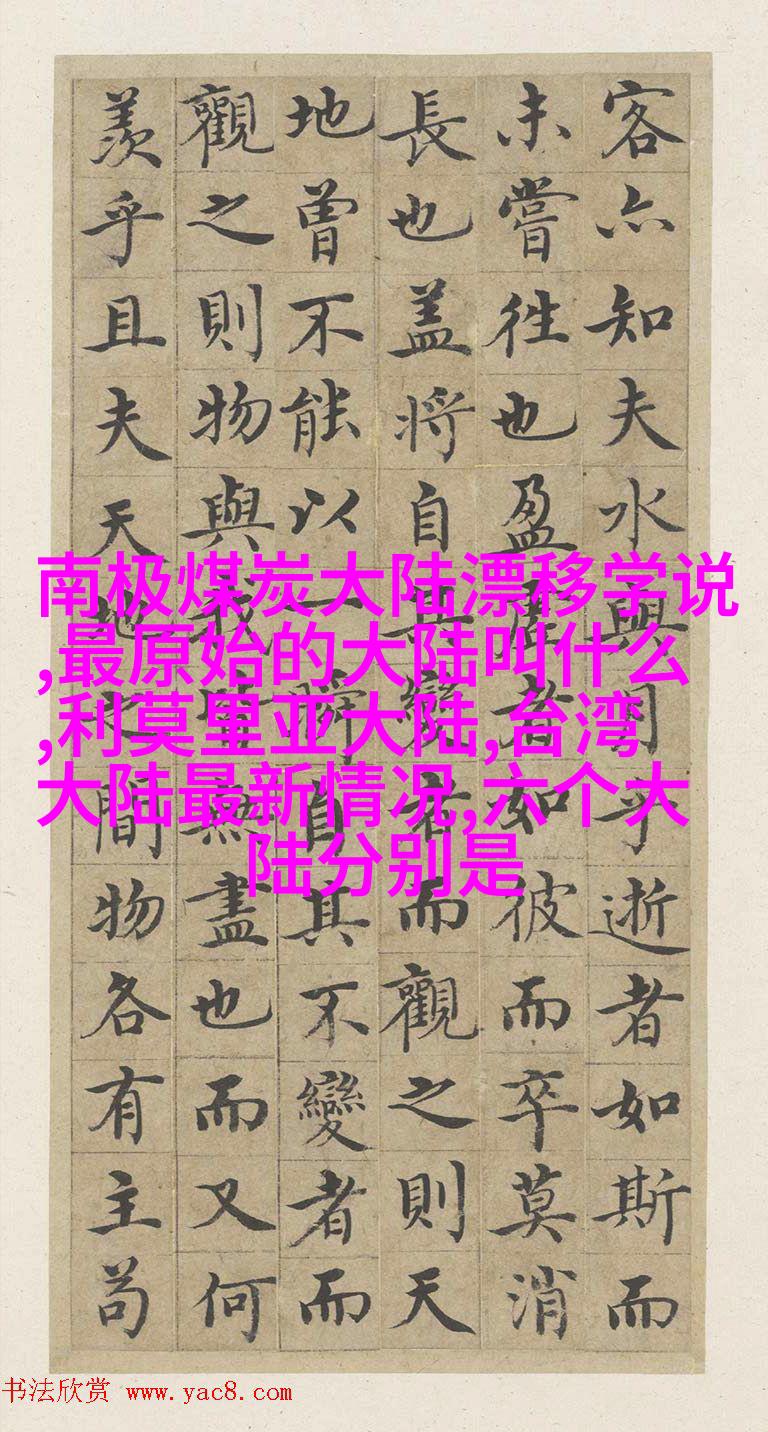 客亦知夫水與月乎逝者如斯而
未嘗往也盈虛者如彼而卒莫消
長也盖將自其變者而觀之則天
地曾不能以一瞬自其不變者而
觀之則物與我皆無盡也而又何
羨乎且夫天地之間物各有主苟
南极煤炭大陆漂移学说
,最原始的大陆叫什么
,利莫里亚大陆,台湾
大陆最新情况,六个大
陆分别是
书法欣赏 www.yac8.com